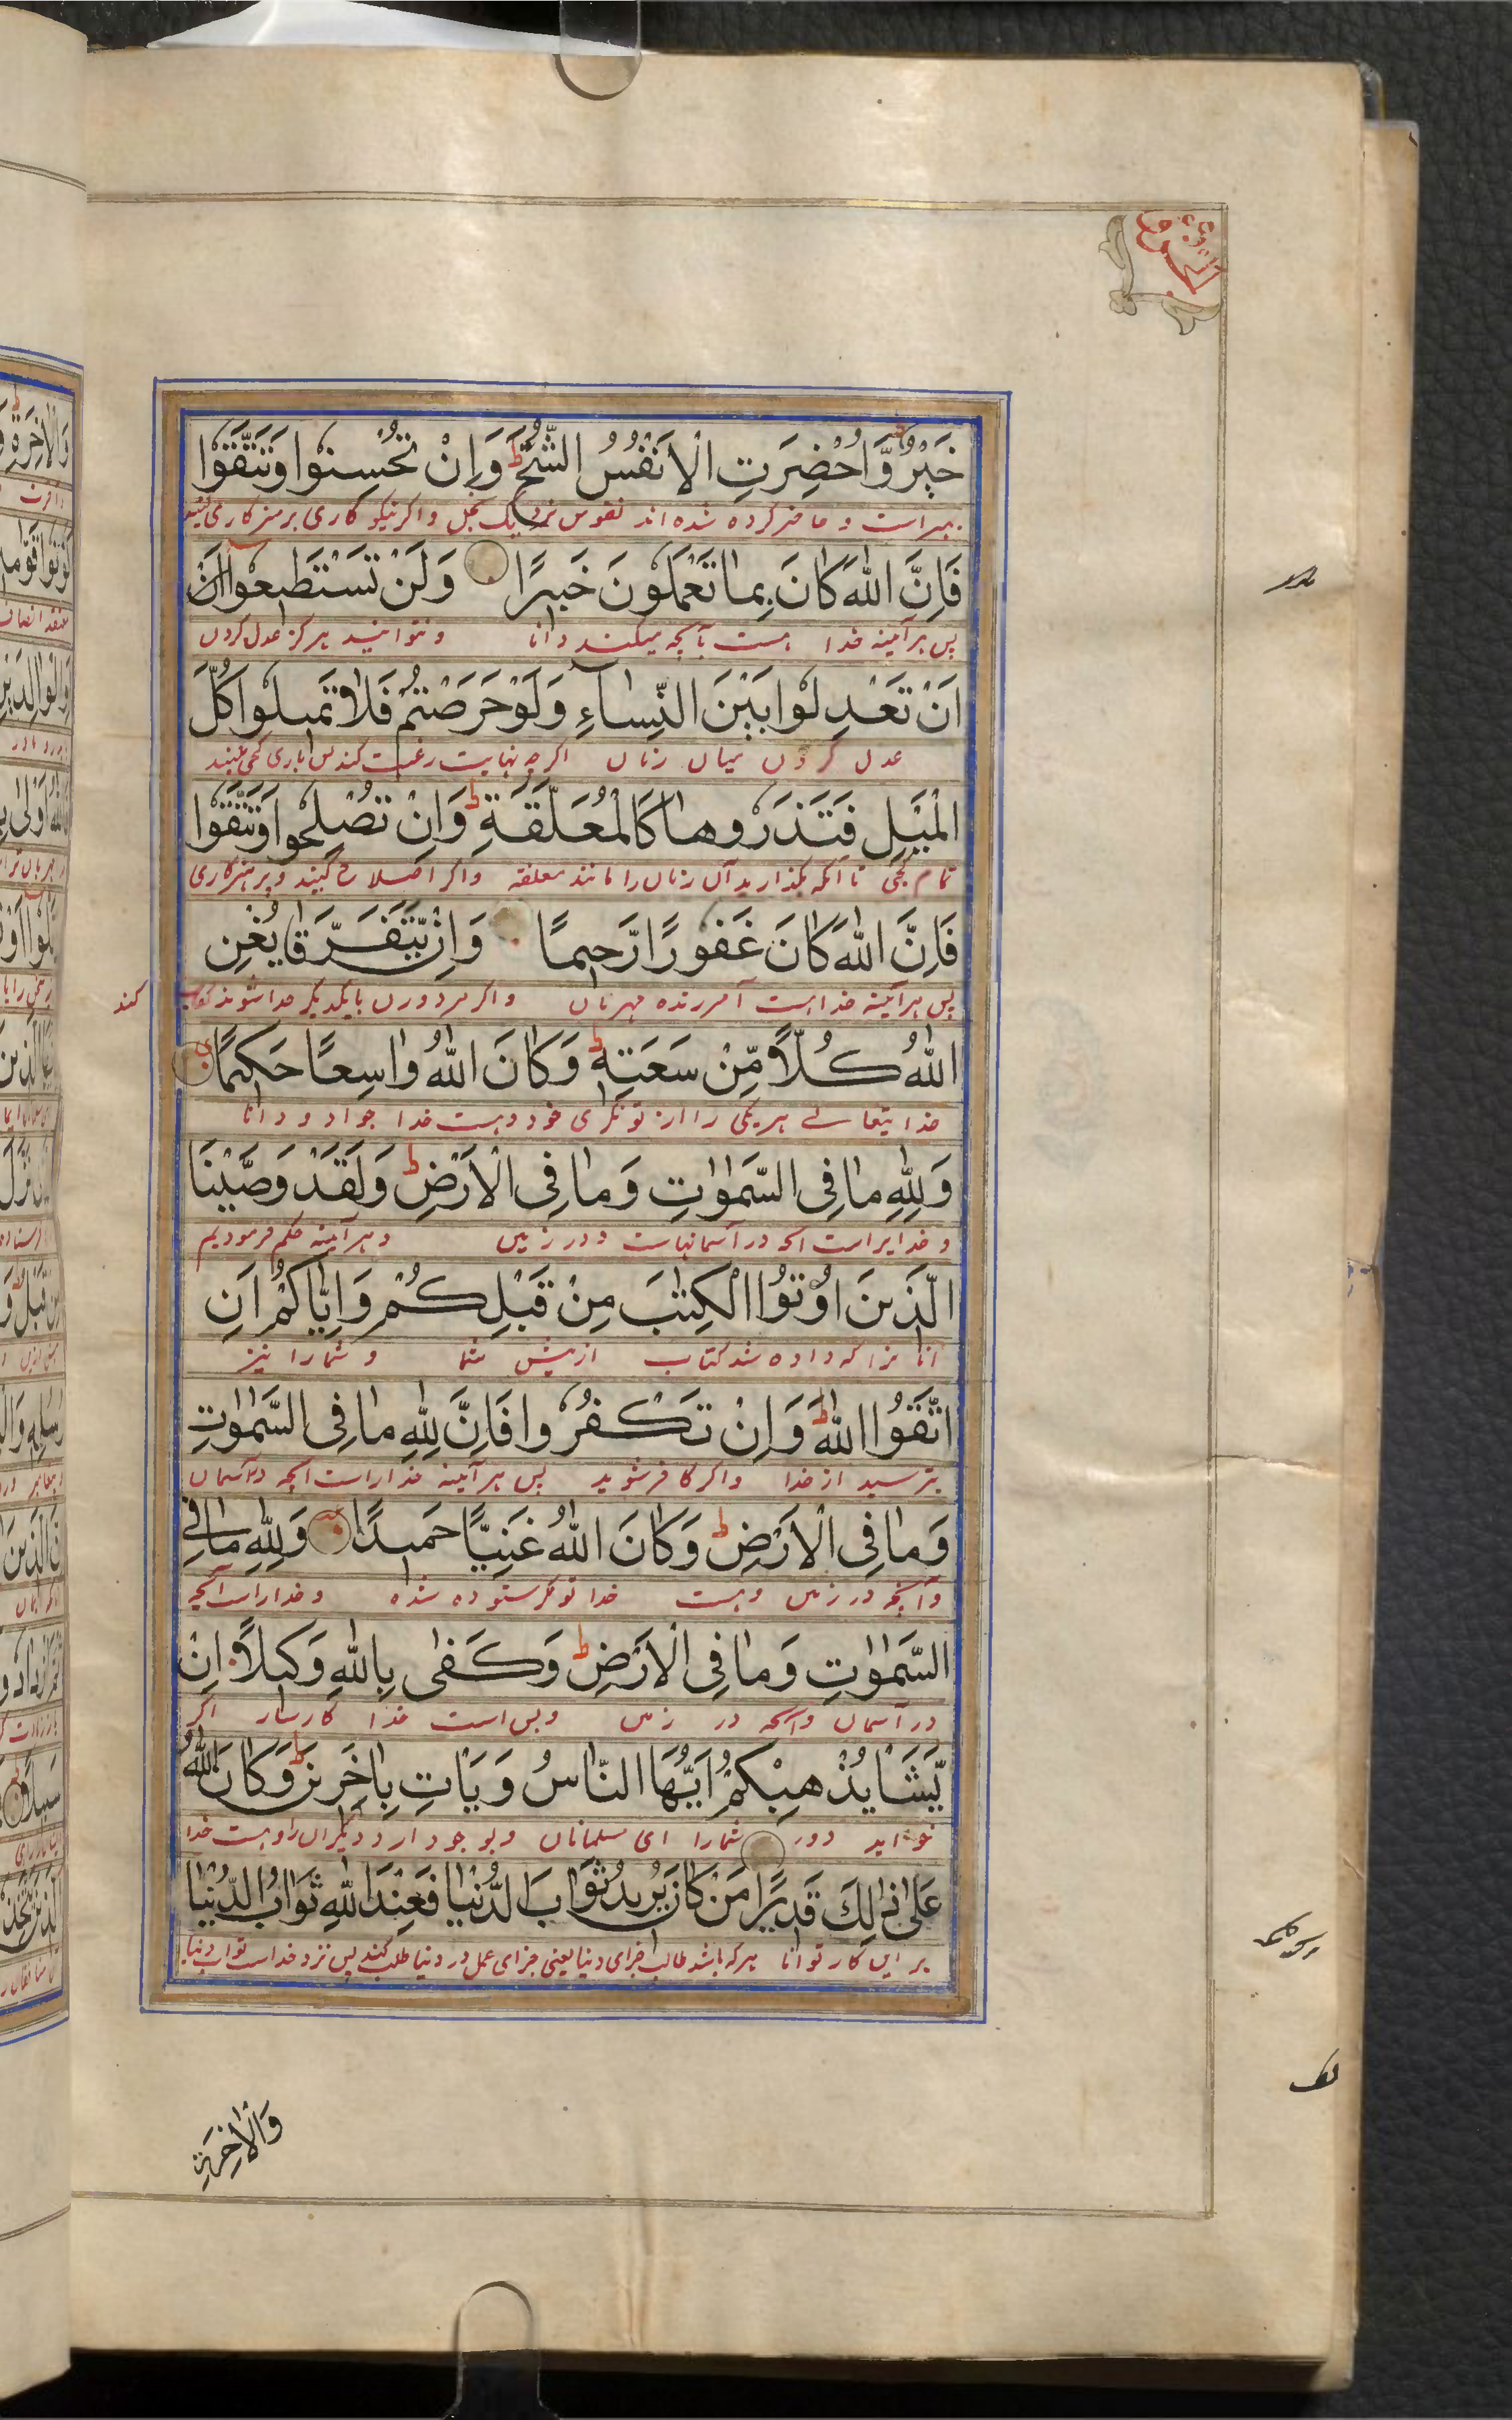 خَيْرٌ وَّاُحْضِرَتِ الْاَنْفُسُ الشُّحَّ ط وَاِنْ تُحْسِنُوْا وَتَتَّقُوْا
بهتر است و حاضر کرده شده اند نفوس نزدیک بخل و اگر نیکو کاری پرهیزگاری کنید
فَاِنَّ اللّٰهَ كَانَ بِمَا تَعْمَلُوْنَ خَبِيْرًا وَلَنْ تَسْتَطِيْعُوْا اَنْ
پس هر آینه خدا هست بآنچه میکنید دانا و نتوانید هرگز عدل کردن
اَنْ تَعْدِلُوْا بَيْنَ النِّسَآءِ وَلَوْ حَرَصْتُمْ فَلَا تَمِيْلُوْا كُلَّ
عدل کردن میان زنان اگرچه نهایت رغبت کنید پس باری کجی مکنید
الْمَيْلِ فَتَذَرُوْهَا كَالْمُعَلَّقَةِ ط وَاِنْ تُصْلِحُوْا وَتَتَّقُوْا
تمام کجی تا آنکه بگذارید آن زنان را مانند معلقه و اگر اصلاح کنید و پرهیزگاری
فَاِنَّ اللّٰهَ كَانَ غَفُوْرًا رَّحِيْمًا وَاِنْ يَّتَفَرَّقَا يُغْنِ
پس هر آینه خدا هست آمرزنده مهربان و اگر مرد و زن بایکدیگر جدا شوند کفایت کند
اللّٰهُ كُلًّا مِّنْ سَعَتِهٖ ط وَكَانَ اللّٰهُ وَاسِعًا حَكِيْمًا
خدایتعالے هر یکی را از تونگری خود و هست خدا جواد و دانا
وَلِلّٰهِ مَا فِى السَّمٰوٰتِ وَمَا فِى الْاَرْضِ ط وَلَقَدْ وَصَّيْنَا
و خدایراست آنچه در آسمانهاست و در زمین و هر آینه حکم فرمودیم
الَّذِيْنَ اُوْتُوا الْكِتٰبَ مِنْ قَبْلِكُمْ وَاِيَّاكُمْ اَنِ
آنانرا که داده شد کتاب از پیش شما و شمارا نیز
اتَّقُوا اللّٰهَ ط وَاِنْ تَكْفُرُوْا فَاِنَّ لِلّٰهِ مَا فِى السَّمٰوٰتِ
بترسید از خدا و اگر کافر شوید پس هر آینه خداراست آنچه در آسمان
وَمَا فِى الْاَرْضِ ط وَكَانَ اللّٰهُ غَنِيًّا حَمِيْدًا وَلِلّٰهِ مَا فِى
و آنچه در زمین و هست خدا تونگر ستوده شده و خداراست آنچه
السَّمٰوٰتِ وَمَا فِى الْاَرْضِ ط وَكَفٰى بِاللّٰهِ وَكِيْلًا اِنْ
در آسمان و آنچه در زمین و بس است خدا کارساز اگر
يَّشَاْ يُذْهِبْكُمْ اَيُّهَا النَّاسُ وَيَاْتِ بِاٰخَرِيْنَ ط وَكَانَ اللّٰهُ
خواهد دور شمارا ای مسلمانان و بوجود آرد دیگرانرا و هست خدا
عَلٰى ذٰلِكَ قَدِيْرًا مَنْ كَانَ يُرِيْدُ ثَوَابَ الدُّنْيَا فَعِنْدَ اللّٰهِ ثَوَابُ الدُّنْيَا
بر این کار توانا هر که باشد طالب جزای دنیا یعنی جزای عمل در دنیا طلب کند پس نزد خداست ثواب دنیا
وَالْاٰخِرَةِ